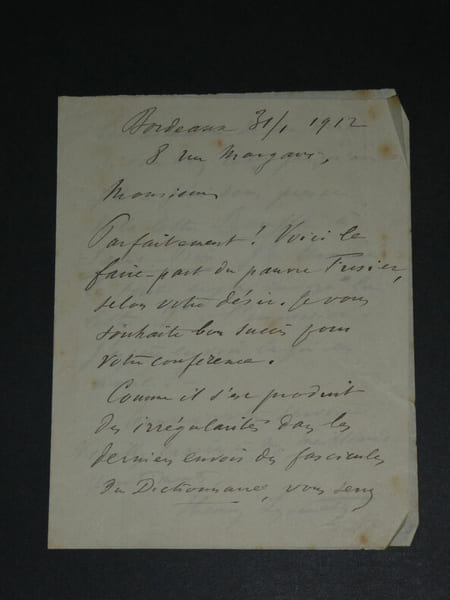 Bordeaux 31/1 1912
8 rue Margaux,
Monsieur
Parfaitement ! Voici le
faire-part du pauvre
selon votre désir. Je vous
souhaite bon succès pour
votre conférence.
Comme il s'est produit
des irrégularités dans les
derniers envois des fascicules
du Dictionnaire, vous serez